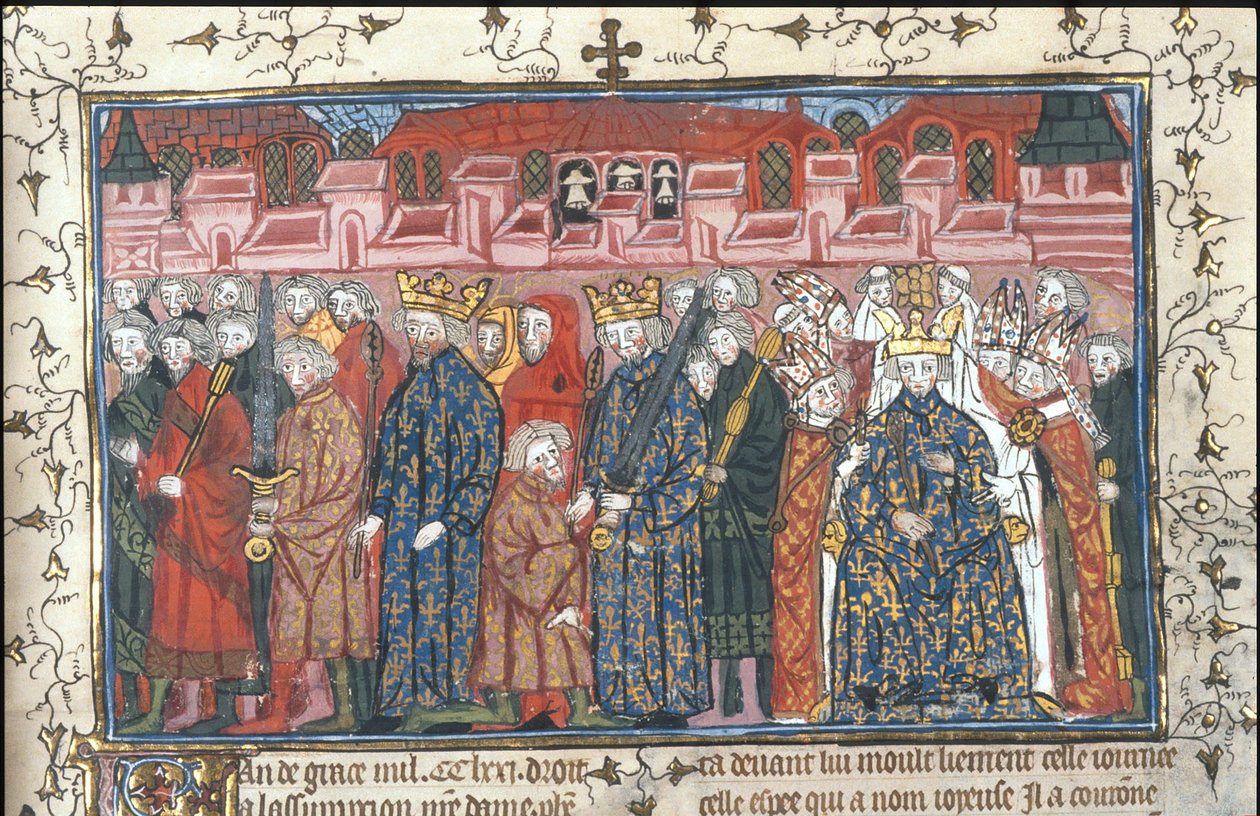 An de grace mil .CClxxi. droit
a lassumption nre dame. phe
ta deuant lui moult liement celle iournee
celle espee qui a nom ioyeuse Il a courone